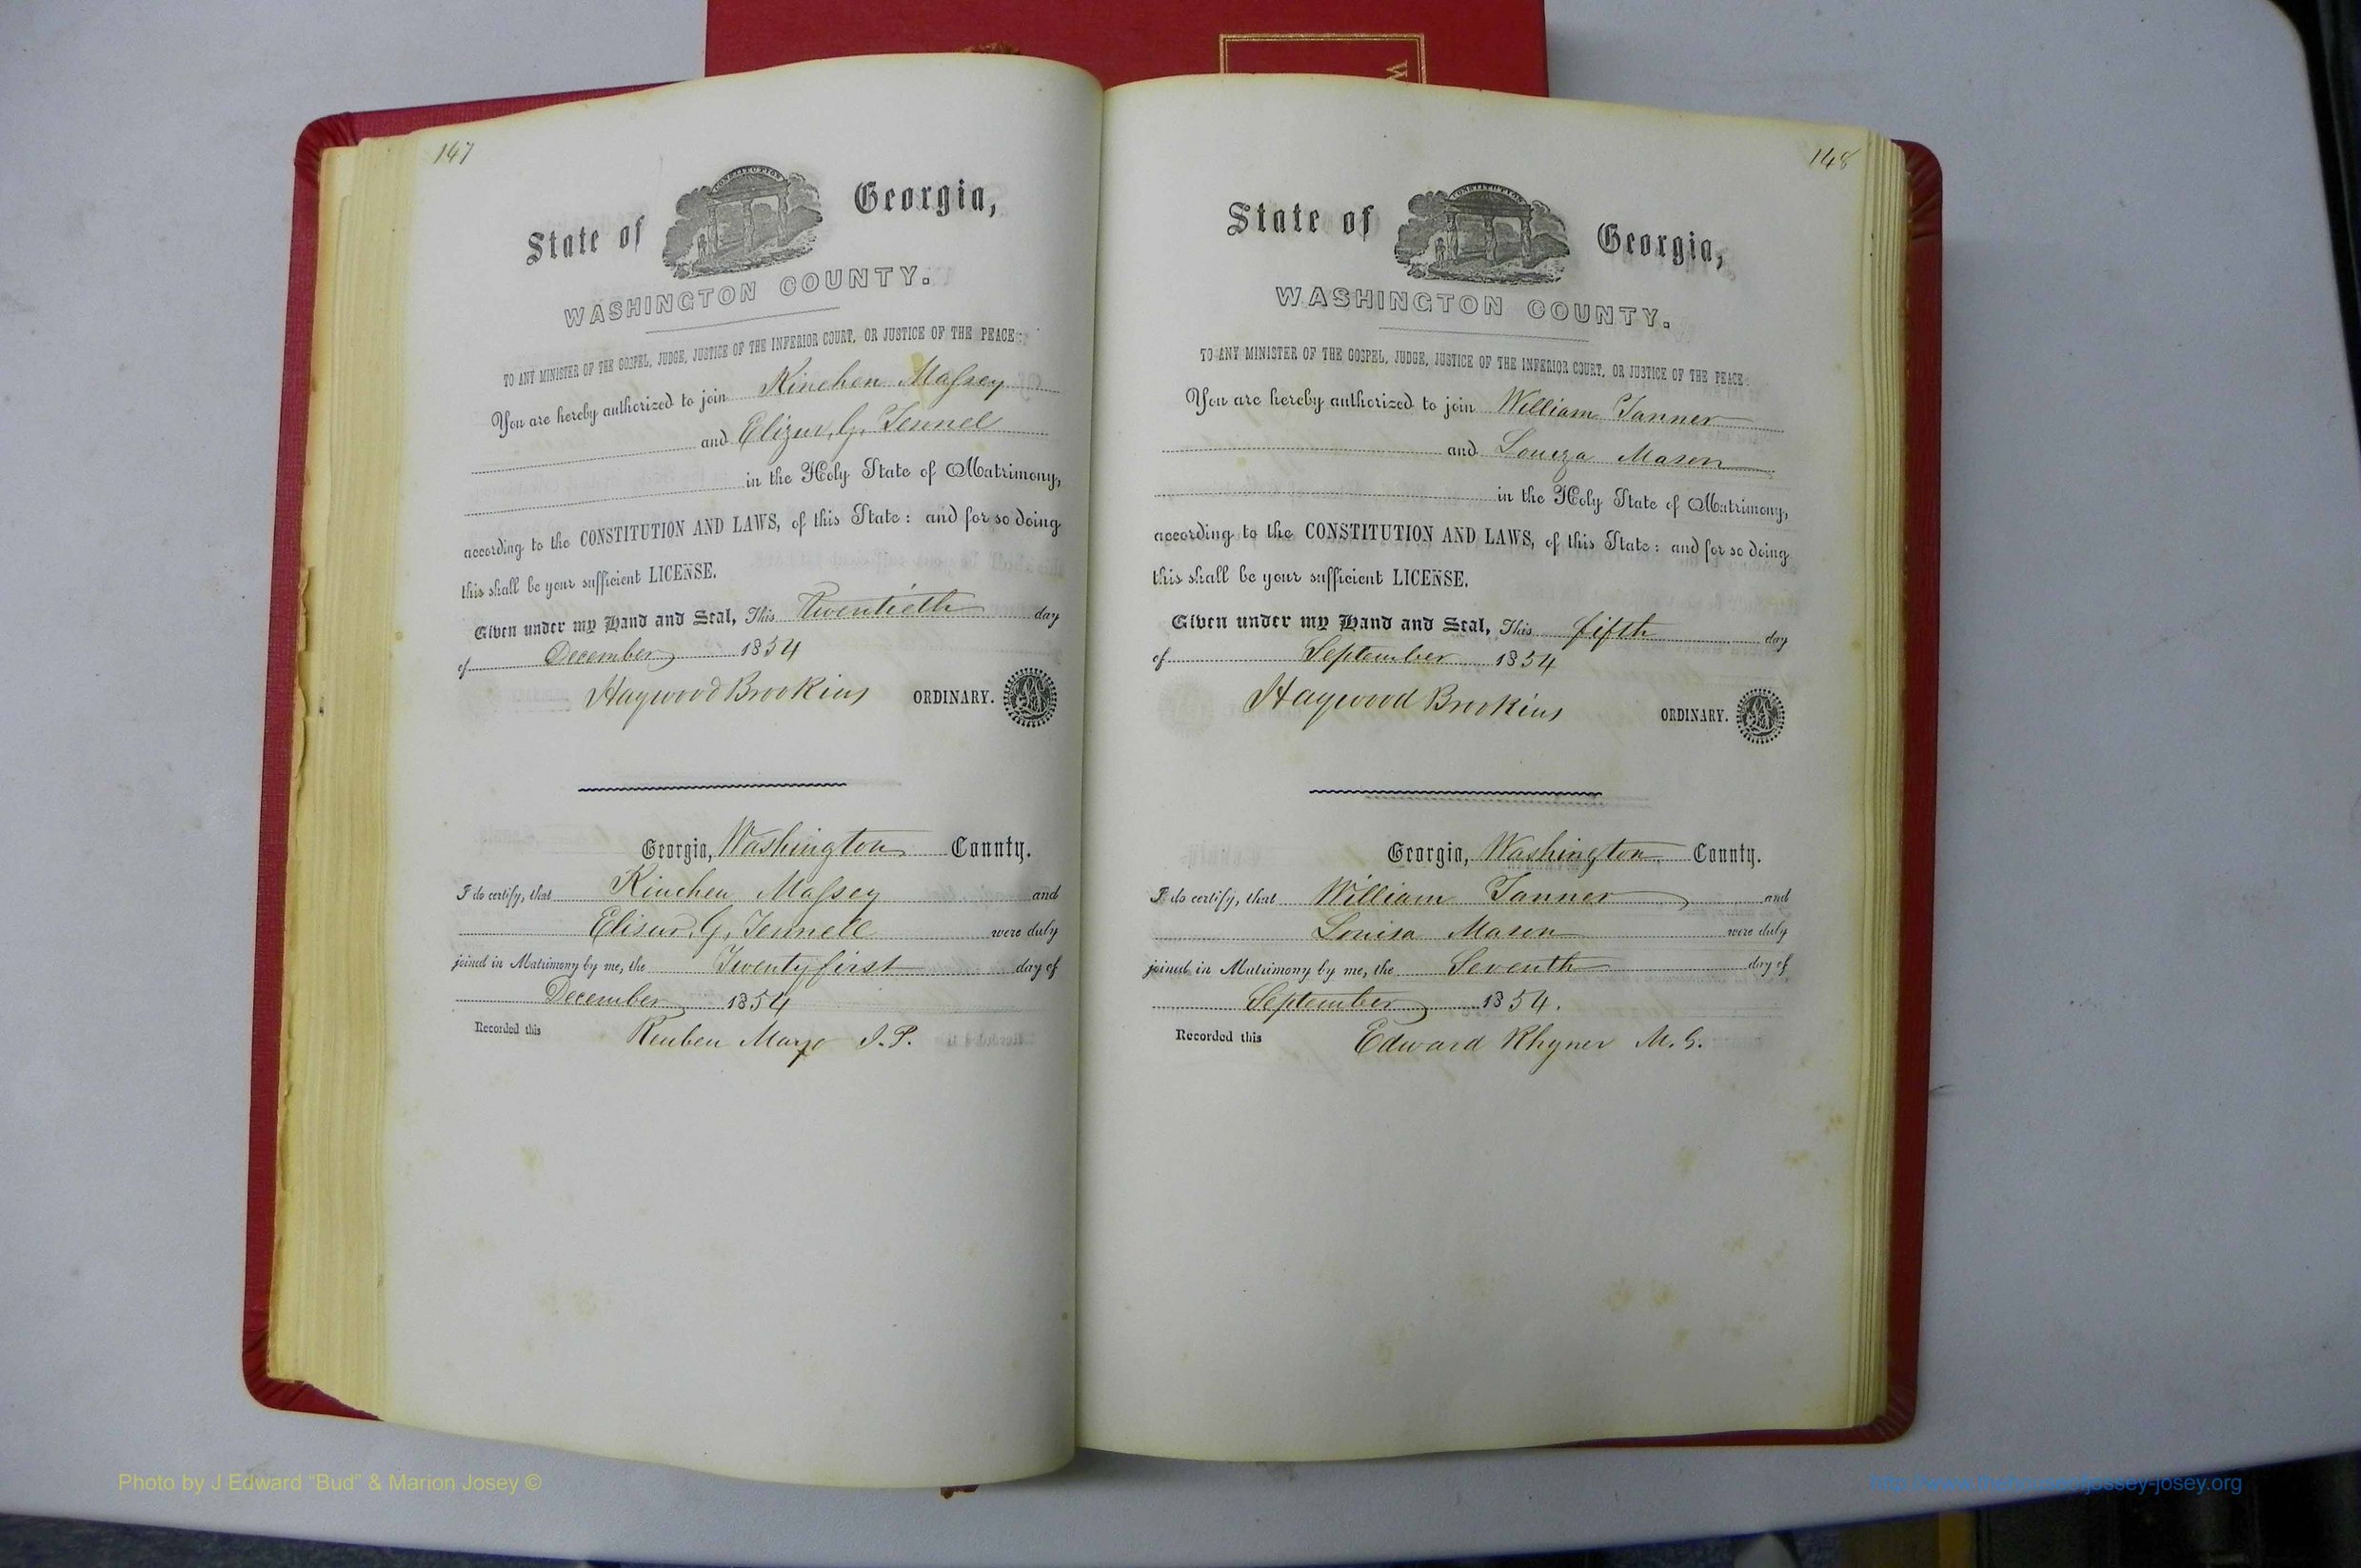 W
147
CONSTITUTION
State of Georgia,
WASHINGTON COUNTY.
TO ANY MINISTER OF THE GOSPEL, JUDGE, JUSTICE OF THE INFERIOR COURT, OR JUSTICE OF THE PEACE:
You are hereby authorized to join Kinchen Massey
and Eliza G. Tennel
in the Holy State of Matrimony,
according to the CONSTITUTION AND LAWS, of this State: and for so doing
this shall be your sufficient LICENSE.
Given under my Hand and Seal, This twentieth day
of December 1854
Haywood Brookins ORDINARY.
Georgia, Washington County.
I do certify, that Kinchen Massey and
Elisa G. Tennell were duly
joined in Matrimony by me, the Twenty first day of
December 1854
Recorded this Reuben Mayo J.P.
148
CONSTITUTION
State of Georgia,
WASHINGTON COUNTY.
TO ANY MINISTER OF THE GOSPEL, JUDGE, JUSTICE OF THE INFERIOR COURT, OR JUSTICE OF THE PEACE:
You are hereby authorized to join William Tanner
and Loueza Mason
in the Holy State of Matrimony,
according to the CONSTITUTION AND LAWS, of this State: and for so doing
this shall be your sufficient LICENSE.
Given under my Hand and Seal, This fifth day
of September 1854
Haywood Brookins ORDINARY.
Georgia, Washington County.
I do certify, that William Tanner and
Louisa Mason were duly
joined in Matrimony by me, the Seventh day of
September 1854.
Recorded this Edward Rhyner M.G.
Photo by J Edward “Bud” & Marion Josey ©